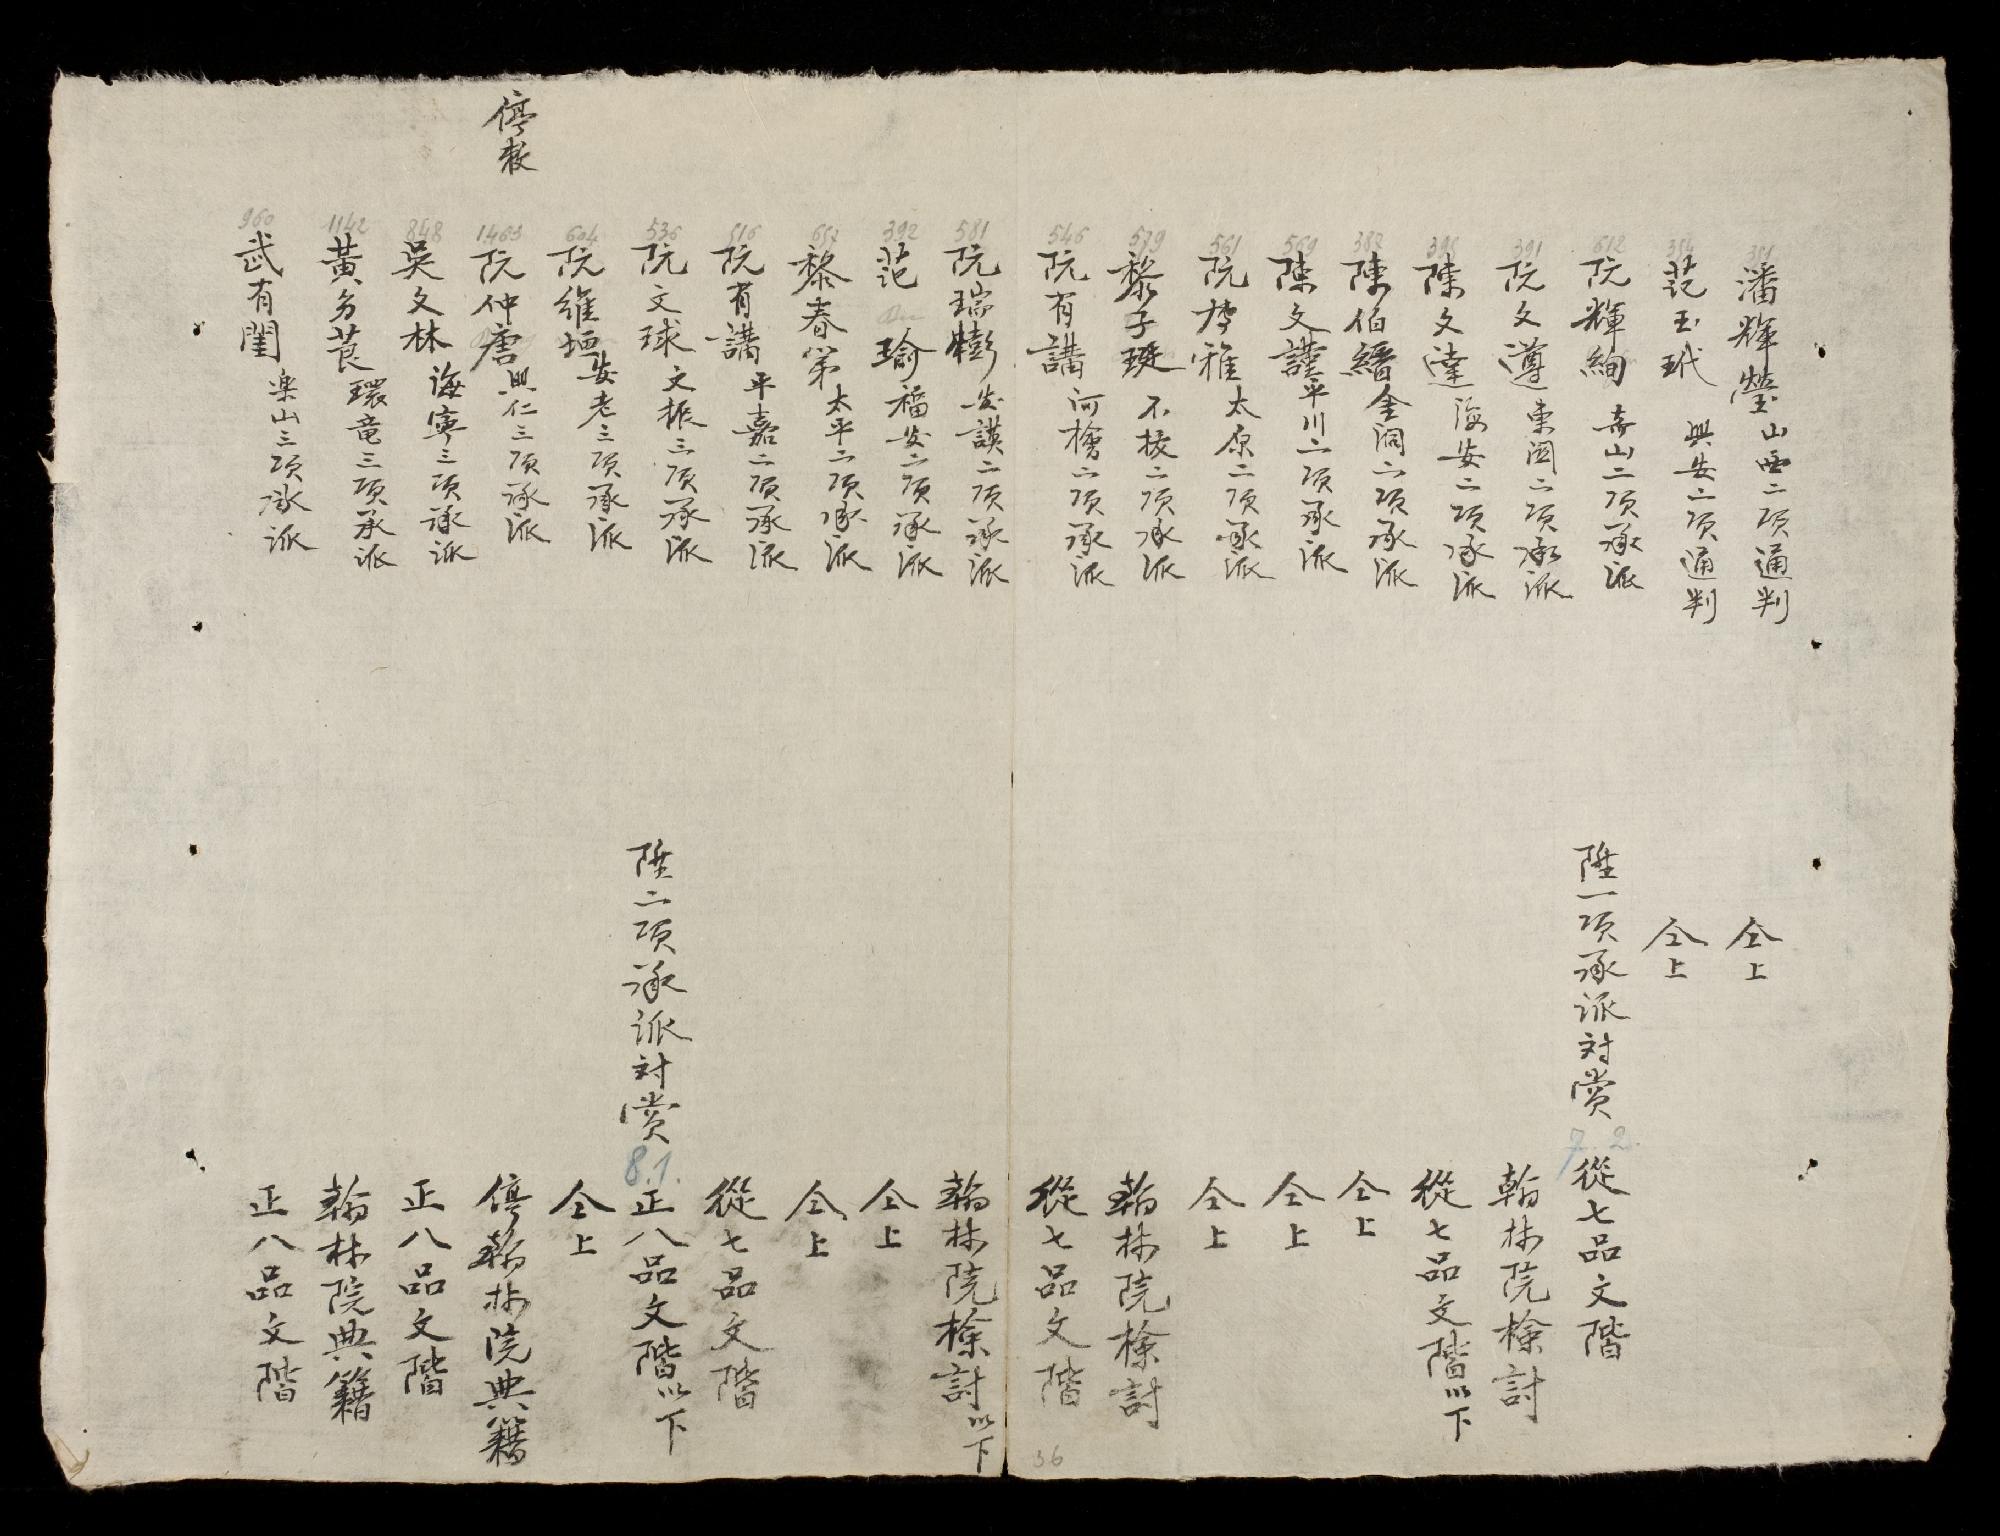 潘輝瑩山西二項通判 仝上
范玉玳興安二項通判 仝上
阮輝絢壽山二項承派 陞一項承派対賞 7.2. 從七品文階
阮文遵東関二項承派 翰林院檢討
陳文達海安二項承派 從七品文階以下
陳伯縉金洞二項承派 仝上
陳文謹平川二項承派 仝上
阮雅太原二項承派 仝上
黎子珽不拔二項承派 翰林院檢討
阮有講河檜二項承派 從七品文階
阮瑞安謨二項承派 翰林院檢討以下
范瑜福安二項承派 仝上
黎春第太平二項承派 仝上
阮有講平嘉二項承派 從七品文階
阮文球文振三項承派 陞二項承派対賞 8.1. 正八品文階以下
阮維垣安老三項承派 仝上
停教 阮仲唐興仁三項承派 停翰林院典籍
吳文林海寧三項承派 正八品文階
黃芳莨環竜三項承派 翰林院典籍
武有閨楽山三項承派 正八品文階
36